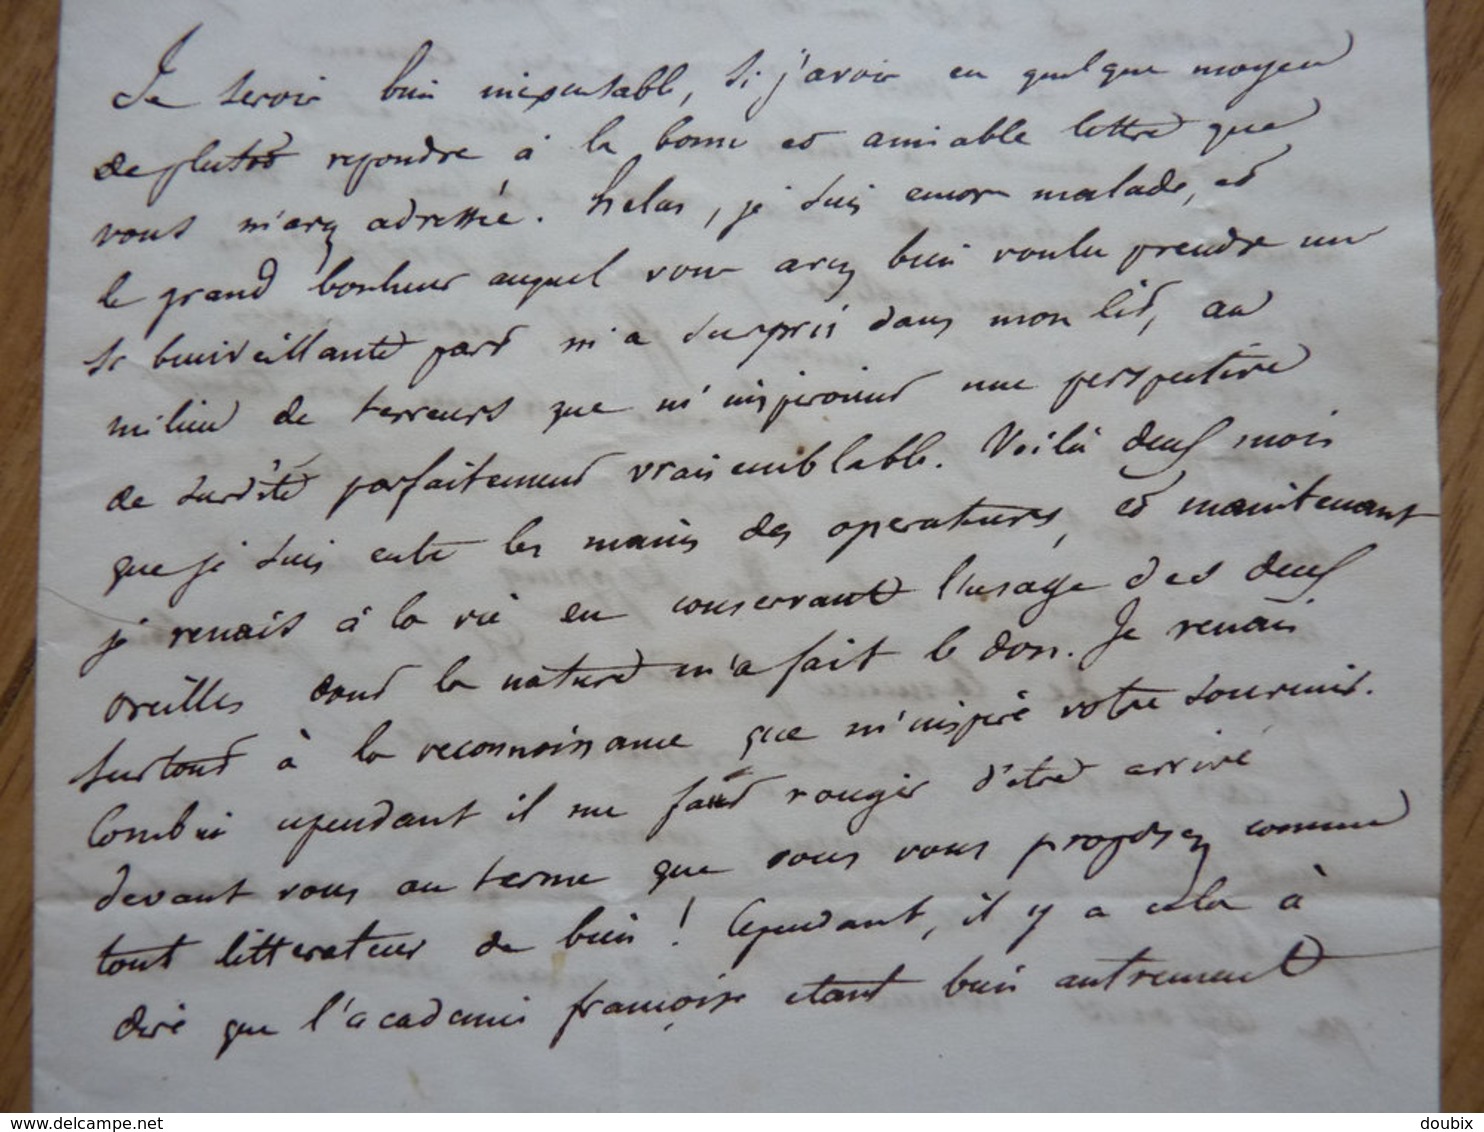 Je serois bien inexcusable, si j'avois eu quelque moyen
de plutot repondre à la bonne et aimable lettre que
vous m'avez adressée. helas, je suis encor malade, et
le grand bonheur auquel vous avez bien voulu prendre une
si bienveillante part m'a surpris dans mon lit, au
milieu de terreurs que m'inspiroient une perspective
de surdité parfaitement vraisemblable. Voilà deux mois
que je suis entre les mains des operateurs, et maintenant
je renais à la vie en conservant l'usage des deux
oreilles dont la nature m'a fait le don. Je renais
surtout à la reconnoissance que m'inspire votre souvenir.
Combien cependant il me faut rougir d'etre arrivé
devant vous au terme que vous vous proposez comme
tout litterateur de bien ! Cependant, il y a cela à
dire que l'academie françoise etant bien autrement
delcampe.net
doubix